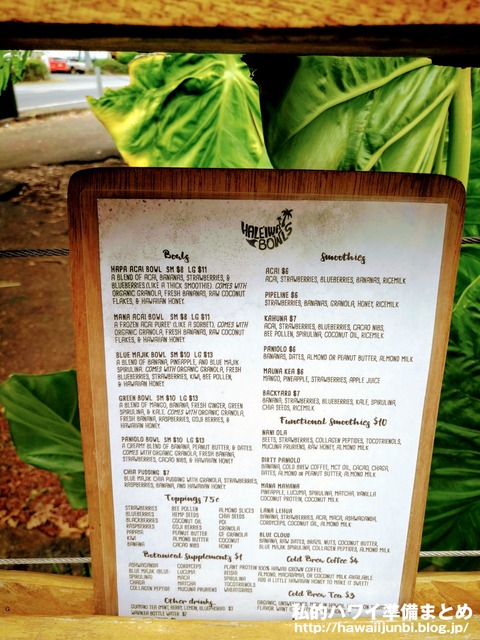 HALEIWA
BOWLS
Bowls
HAPA ACAI BOWL SM $8 LG $11
A BLEND OF ACAI, BANANAS, STRAWBERRIES, &
BLUEBERRIES.(LIKE A THICK SMOOTHIE). COMES WITH
ORGANIC GRANOLA, FRESH BANANAS, RAW COCONUT
FLAKES, & HAWAIIAN HONEY.
MANA ACAI BOWL SM $8 LG $11
A FROZEN ACAI PUREE' (LIKE A SORBET). COMES WITH
ORGANIC GRANOLA, FRESH BANANAS, RAW COCONUT
FLAKES, & HAWAIIAN HONEY
BLUE MAJIK BOWL SM $10 LG $13
A BLEND OF BANANA, PINEAPPLE, AND BLUE MAJIK
SPIRULINA. COMES WITH ORGANIC GRANOLA, FRESH
BLUEBERRIES, STRAWBERRIES, KIWI, BEE POLLEN,
& HAWAIIAN HONEY.
GREEN BOWL SM $10 LG $13
A BLEND OF MANGO, BANANA, FRESH GINGER, GREEN
SPIRULINA, & KALE. COMES WITH ORGANIC GRANOLA,
FRESH BANANA, RASPBERRIES, GOJI BERRIES, &
HAWAIIAN HONEY.
PANIOLO BOWL SM $10 LG $13
A CREAMY BLEND OF BANANA, PEANUT BUTTER, & DATES.
COMES WITH ORGANIC GRANOLA, FRESH BANANA,
STRAWBERRIES, CACAO NIBS, & HAWAIIAN HONEY
CHIA PUDDING $7
BLUE MAJIK CHIA PUDDING WITH GRANOLA, STRAWBERRIES,
RASPBERRIES, BANANA, AND HAWAIIAN HONEY
Toppings 75¢
STRAWBERRIES BEE POLLEN ALMOND SLICES
BLUEBERRIES HEMP SEEDS CHIA SEEDS
BLACKBERRIES COCONUT OIL POI
RASPBERRIES GOJI BERRIES GRANOLA
PAPAYA PEANUT BUTTER GF GRANOLA
KIWI ALMOND BUTTER COCONUT
BANANA CACAO NIBS HONEY
Botanical Supplements $1
ASHWAGANDA CORDYCEPS PLANT PROTEIN
BLUE MAJIK (BLUE) LUCUMA REISHI
SPIRULINA MACA
CHAGA MATCHA TOCOTRIENOLS
COLLAGEN PEPTIDE MUCUNA PRURIENS WHEATGRASS
Other drinks
WARMING TEA (MINT, BERRY, LEMON, BLUEBERRY) $3
WAIAKEA BOTTLE WATER $2
Smoothies
ACAI $6
ACAI, STRAWBERRIES, BLUEBERRIES, BANANAS, RICEMILK
PIPELINE $6
STRAWBERRIES, BANANAS, GRANOLA, HONEY, RICEMILK
KAHUNA $7
ACAI, STRAWBERRIES, BLUEBERRIES, CACAO NIBS,
BEE POLLEN, SPIRULINA, COCONUT OIL, RICEMILK
PANIOLO $6
BANANAS, DATES, ALMOND OR PEANUT BUTTER, ALMOND MILK
MAUNA KEA $6
MANGO, PINEAPPLE, STRAWBERRIES, APPLE JUICE
BACKYARD $7
BANANA, STRAWBERRIES, BLUEBERRIES, KALE, SPIRULINA,
CHIA SEEDS, RICEMILK
Functional Smoothies $10
NANI OLA
BEETS, STRAWBERRIES, COLLAGEN PEPTIDES, TOCOTRIENOLS,
MUCUNA PRURIENS, RAW HONEY, ALMOND MILK
DIRTY PANIOLO
BANANA, COLD BREW COFFEE, MCT OIL, CACAO, CHAGA,
DATES, ALMOND OR PEANUT BUTTER, ALMOND MILK
MANA MAHANA
PINEAPPLE, LUCUMA, SPIRULINA, MATCHA, VANILLA
COCONUT PROTEIN, COCONUT MILK
LANA LEHUA
BANANA, STRAWBERRIES, ACAI, MACA, ASHWAGANDA,
CORDYCEPS, COCONUT OIL, ALMOND MILK
BLUE CLOUD
BANANA, RAW DATES, BRAZIL NUTS, COCONUT BUTTER,
BLUE MAJIK SPIRULINA, COLLAGEN PEPTIDES, ALMOND MILK
Cold Brew Coffee $4
100% HAWAII GROWN COFFEE
ALMOND, MACADAMIA, OR COCONUT MILK AVAILABLE
ADD A LITTLE HAWAIIAN HONEY TO MAKE IT SWEET!
Cold Brew Tea $3
ORGANIC,
私的ハワイ準備まとめ
http://hawaiijunbi.blog.jp/